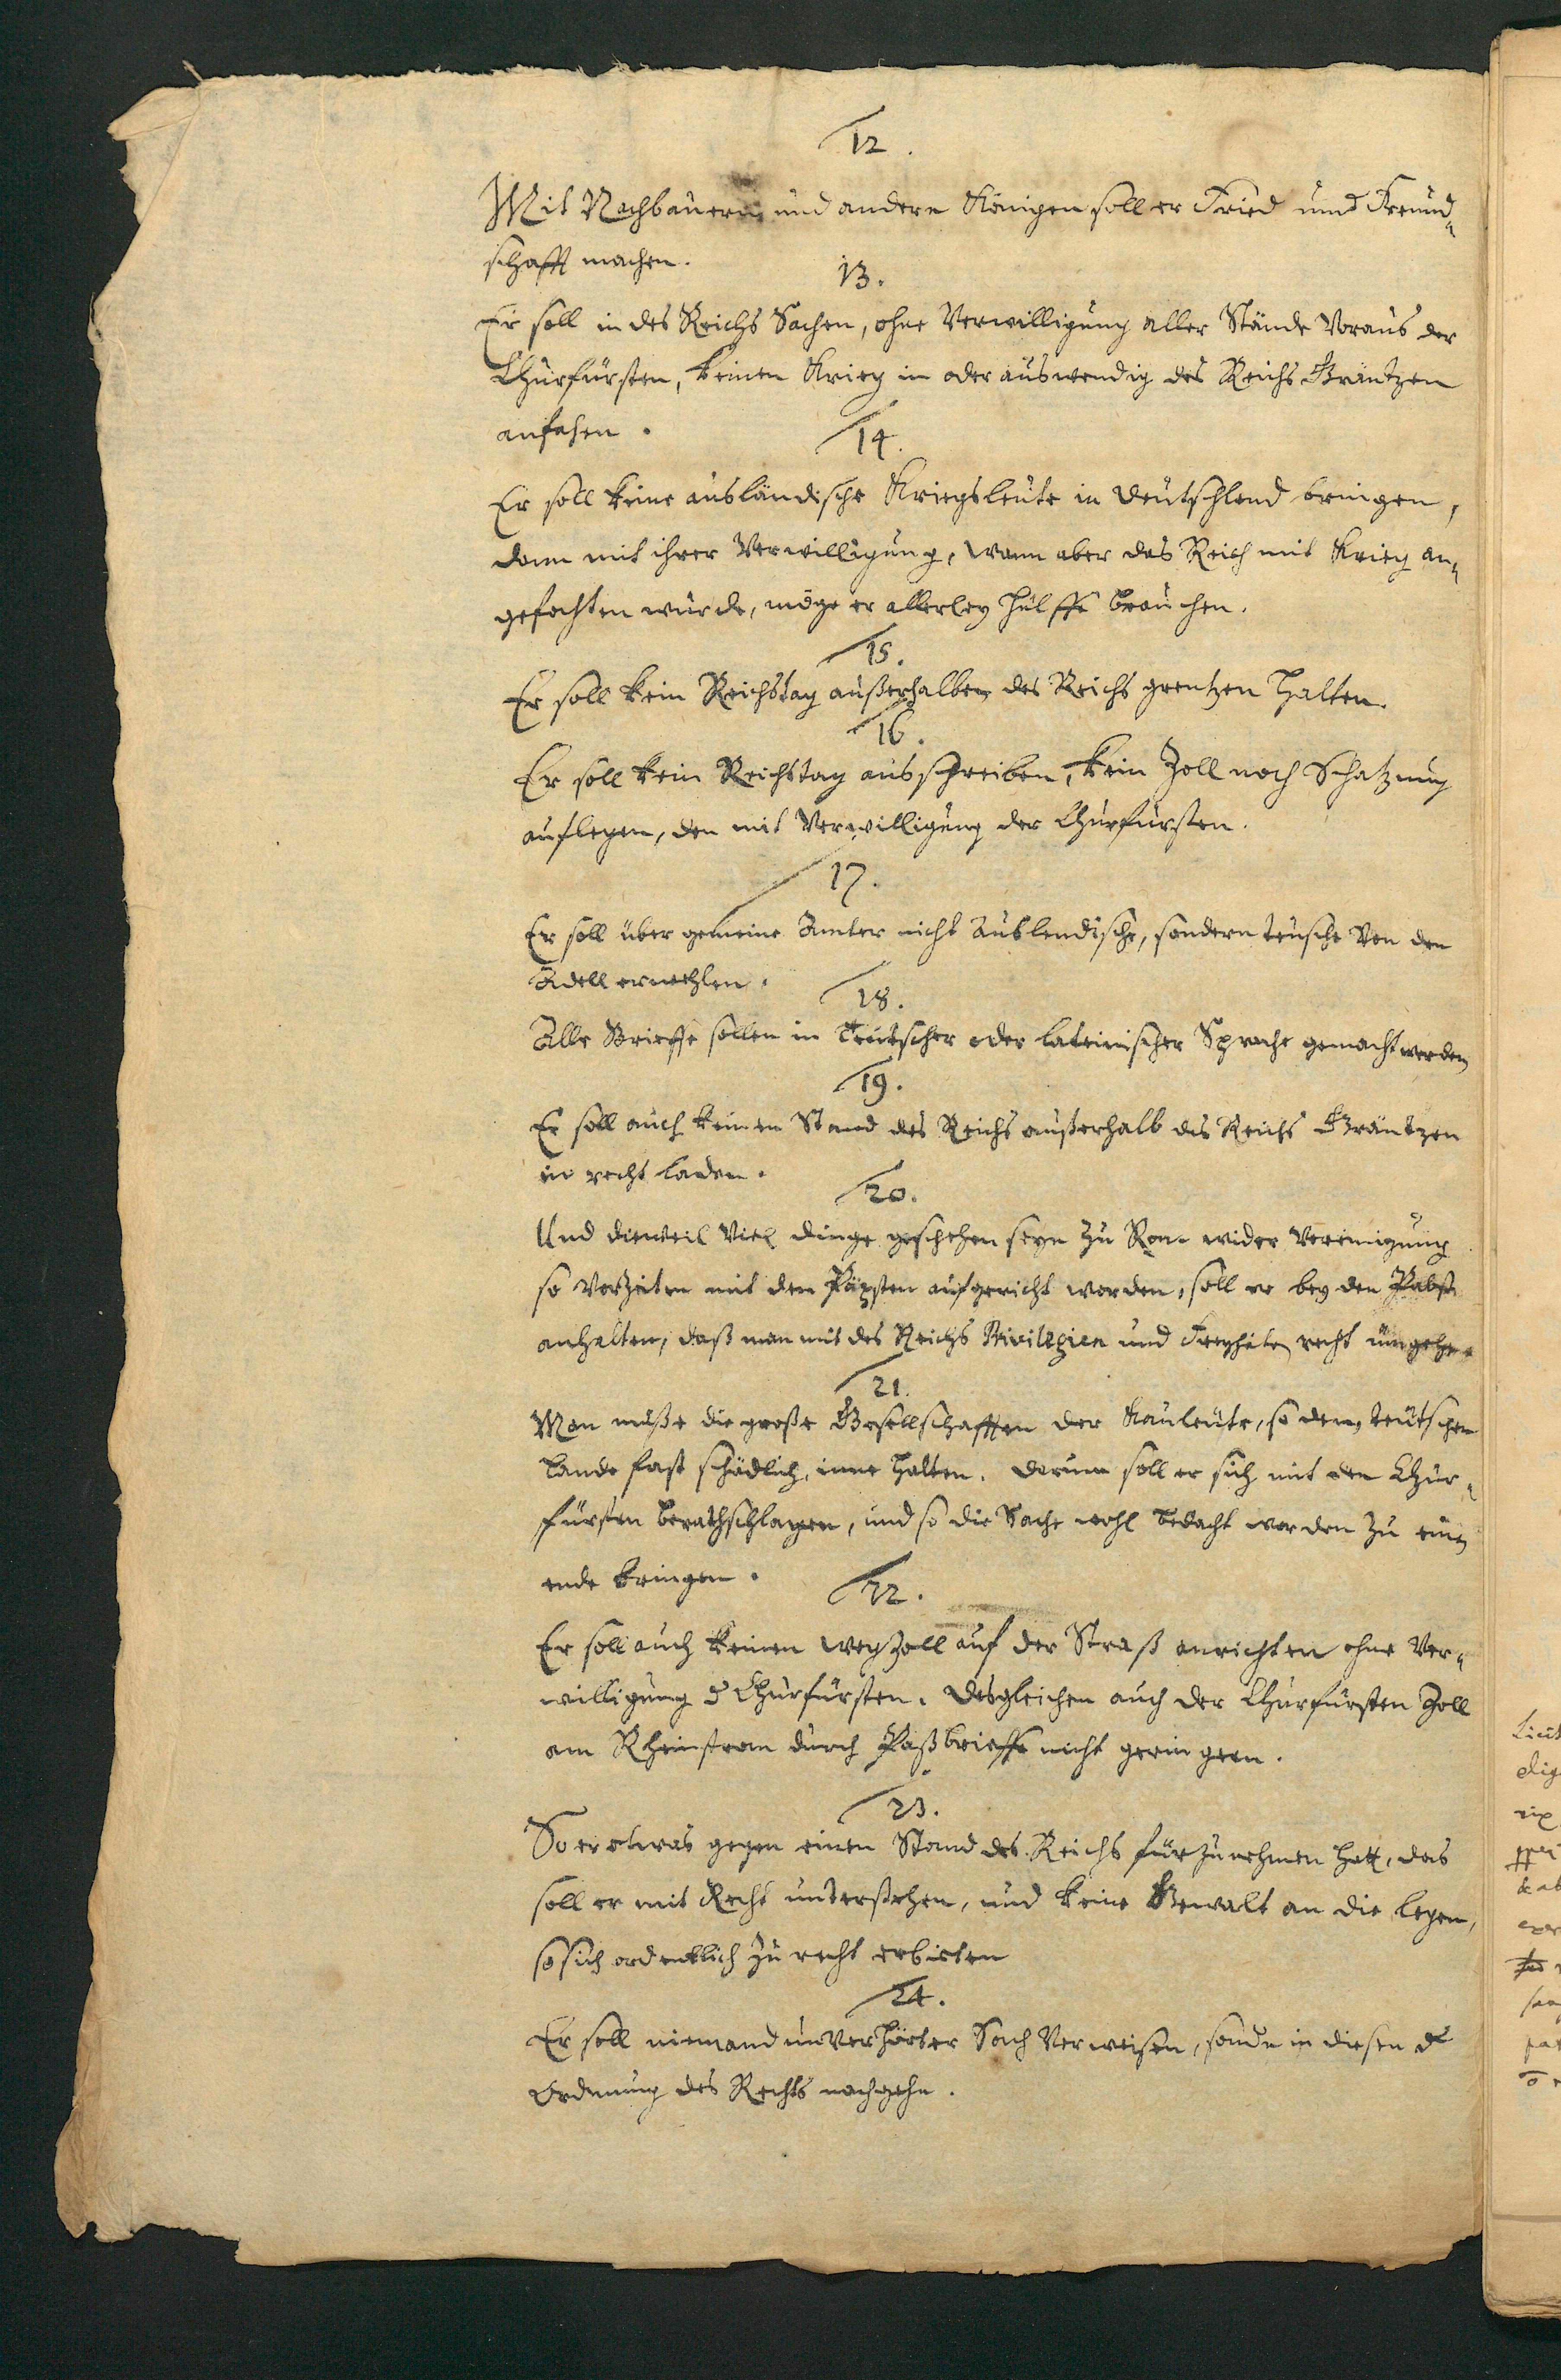 12.
Mit Nachbauern und andern Königen soll er Fried und Freund¬
schafft machen.
13.
Er soll in des Reichs Sachen, ohne Verwilligung aller Stände Voraus der
Churfürsten, keinen Krieg in oder auswendig des Reichs Gräntzen
anfahen.
14.
Er soll keine ausländische Kriegsleute in Deutschland bringen,
dann mit ihrer Verwilligung, Wann aber das Reich mit Krieg an¬
gefochten würde, möge er allerley hülffe brauchen.
15.
Er soll kein Reichstag außerhalben des Reichs grentzen halten.
16.
Er soll kein Reichstag ausschreiben, kein Zoll noch Schatzung
auflegen, den mit Verwilligung der Churfürsten.
17.
Er soll über gemeine Ämter nicht Auslendische, sondern teusche Von den
Adell erwehlen.
18.
Alle Brieffe sollen in Teütscher oder lateinischer Sprache gemacht werden
19.
Er soll auch keinen Stand des Reichs außerhalb des Reichs Gräntzen
in recht laden.
20.
Und dieweil Viel dinge geschehen seyn zu Rom wider Vereinigung
so Vorzeiten mit den Päpsten aufgericht worden, soll er bey den Pabst
anhalten, daß man mit des Reichs Privilegien und Freyheiten recht ümgehe.
21.
Man müße die große Gesellschafften der Kauleute, so dem teütschen
Lande fast schädlich, inne halten. Darum soll er sich mit den Chur¬
fürsten berathschlagen, und so die Sache wohl bedacht worden zu eim
ende bringen.
22.
Er soll auch keinen wegzoll auf der Straß anrichten ohne Ver¬
willigung d Churfürsten. Desgleichen auch der Churfürsten Zoll
am Rheinstrom durch Paßbrieffe nicht geringern.
23.
So er etwas gegen einen Stand des Reichs fürzunehmen hatt, das
soll er mit Recht unterstehen, und keine Gewalt an die legen,
so sich ordentlich zu recht erbieten
24.
Er soll niemand unverhörter Sach Verweisen, sondn in diesen d
Ordnung des Rechts nachgehn.